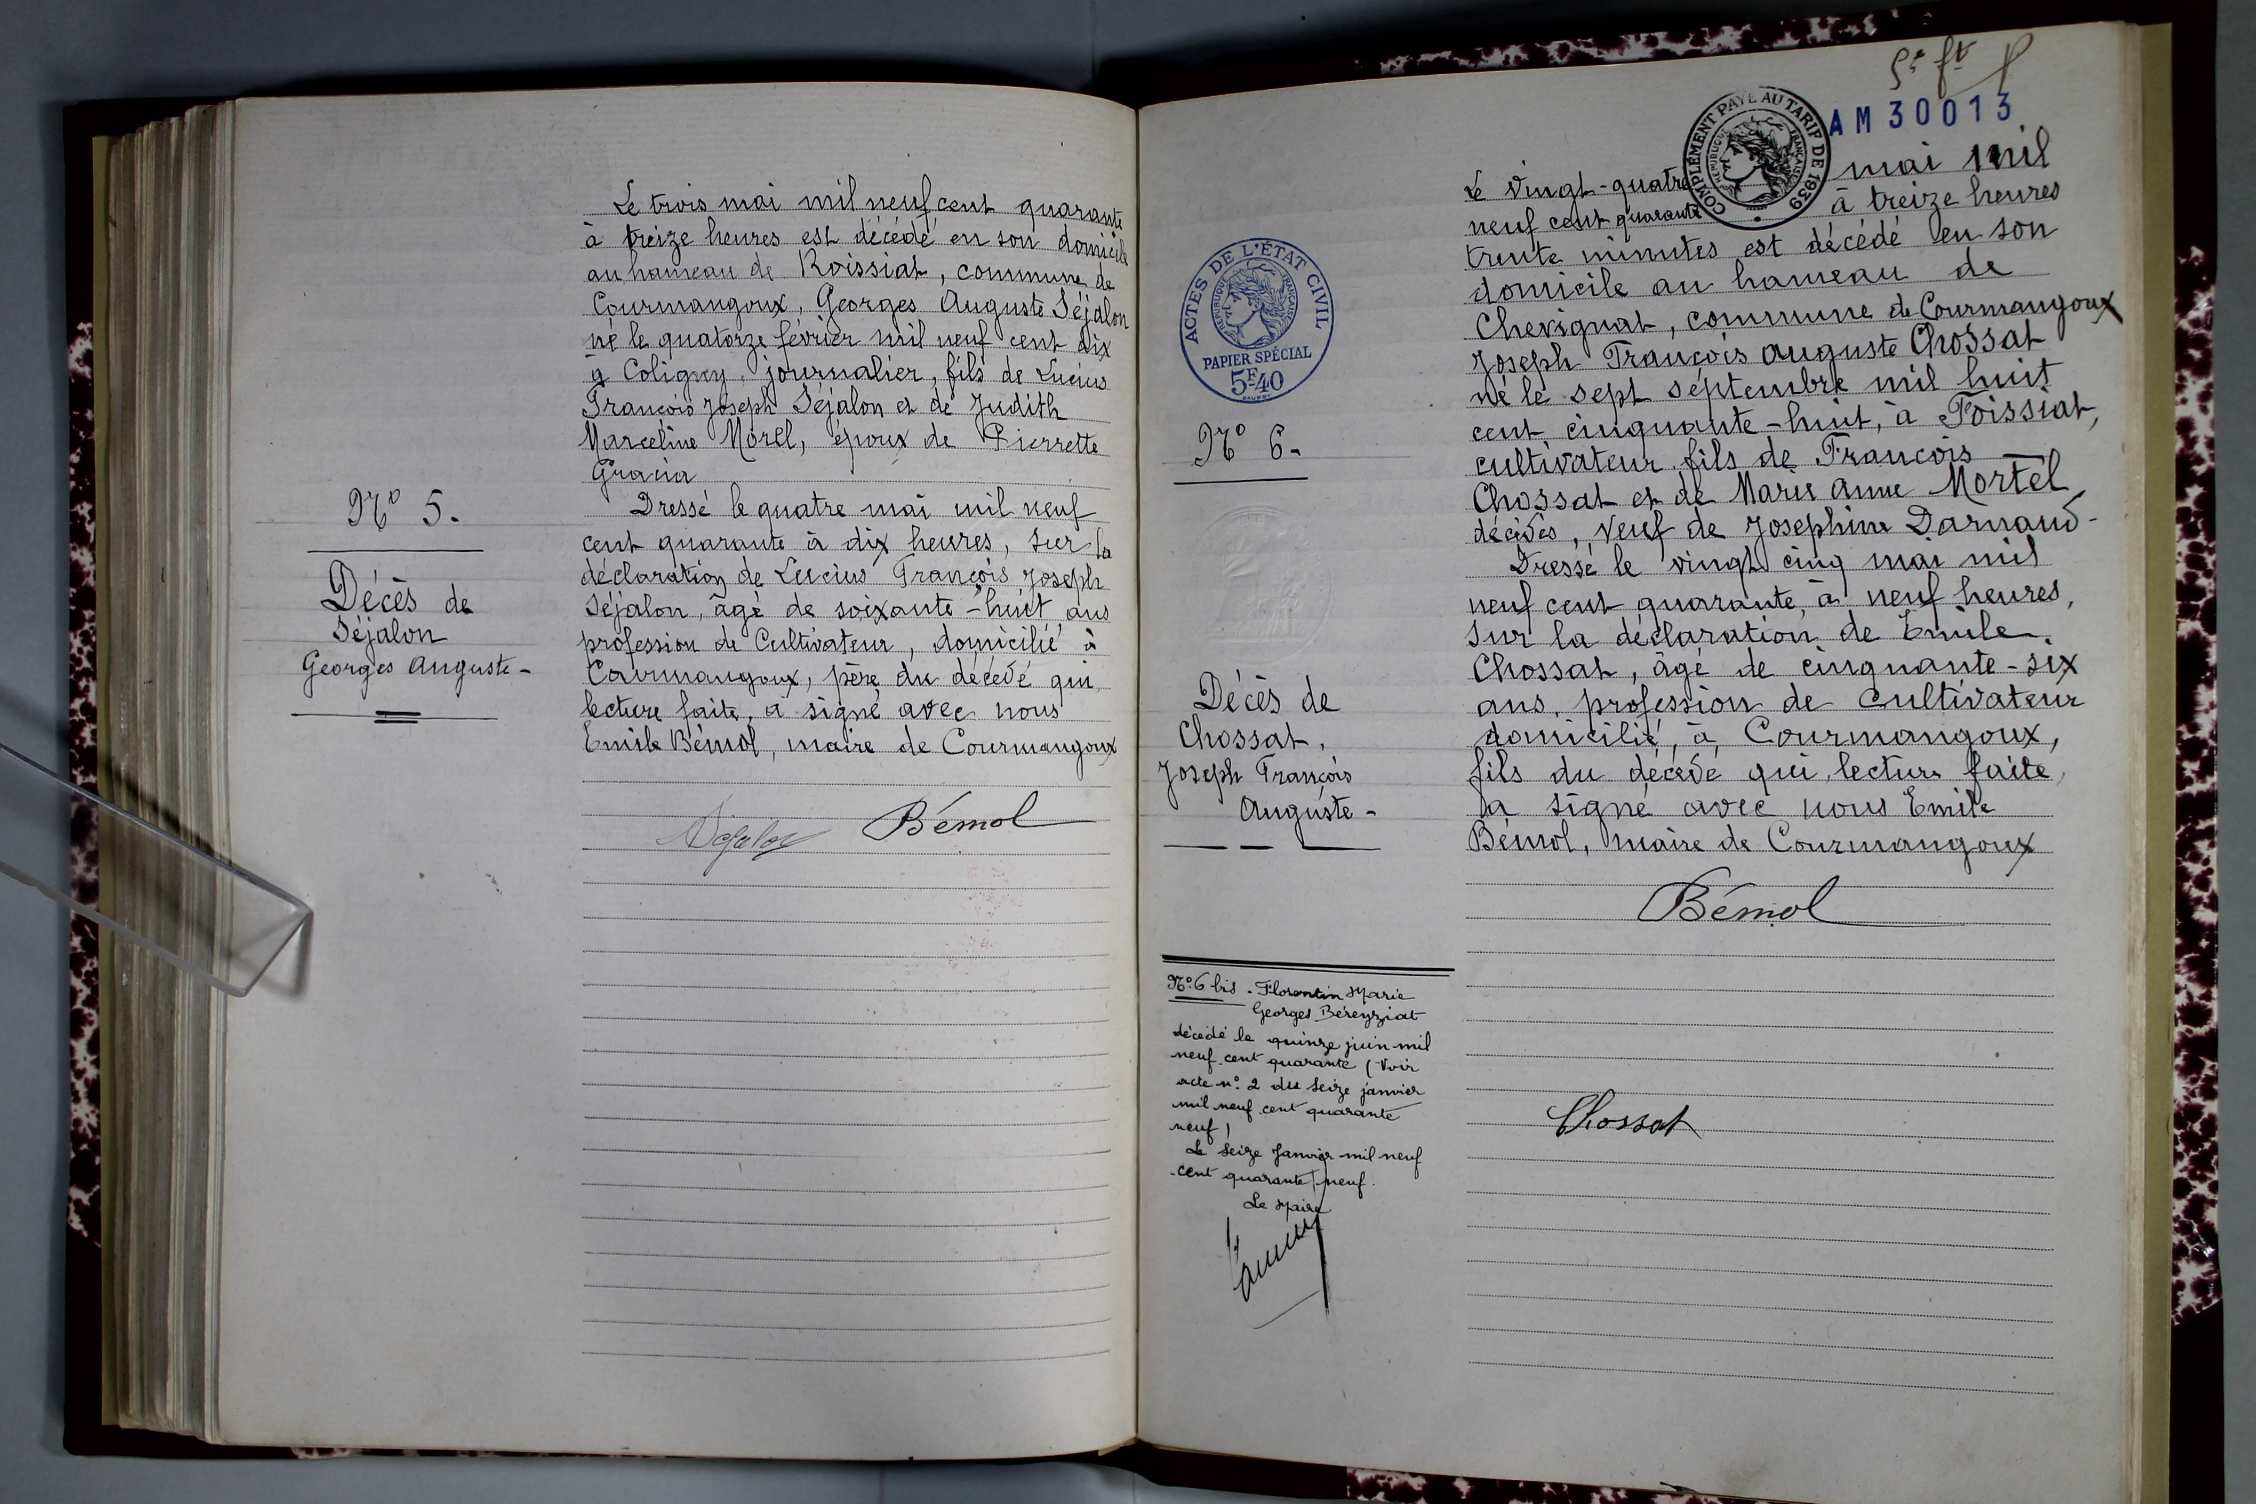 N° 5.
Décès de
Séjalon
Georges Auguste -
Le trois mai mil neuf cent quarante
à treize heures est décédé en son domicile
au hameau de Roissiat, commune de
Courmangoux, Georges Auguste Séjalon
né le quatorze février mil neuf cent dix
à Coligny, journalier, fils de Lucius
François Joseph Séjalon et de Judith
Marceline Morel, époux de Pierrette
Gracia
Dressé le quatre mai mil neuf
cent quarante à dix heures, sur la
déclaration de Lucius François Joseph
Séjalon, âgé de soixante-huit ans
profession de Cultivateur, domicilié à
Courmangoux, père du décédé qui
lecture faite, a signé avec nous
Emile Bémol, maire de Courmangoux
Séjalon Bémol
AM30013
COMPLÉMENT PAYÉ AU TARIF DE 1939
RÉPUBLIQUE FRANÇAISE
ACTES DE L'ÉTAT CIVIL
RÉPUBLIQUE FRANÇAISE
PAPIER SPÉCIAL
5F40
N° 6.
Décès de
Chossat,
Joseph François
Auguste -
Le vingt-quatre mai mil
neuf cent quarante à treize heures
trente minutes est décédé en son
domicile au hameau de
Chevignat, commune de Courmangoux
Joseph François Auguste Chossat
né le sept septembre mil huit
cent cinquante-huit, à Foissiat,
cultivateur fils de François
Chossat et de Marie Anne Mortel
décédés, veuf de Josephine Darnaud -
Dressé le vingt cinq mai mil
neuf cent quarante, à neuf heures,
sur la déclaration de Emile
Chossat, âgé de cinquante-six
ans, profession de cultivateur
domicilié, à Courmangoux,
fils du décédé qui, lecture faite,
a signé avec nous Emile
Bémol, maire de Courmangoux
Bémol
Chossat
N° 6 bis. Florentin Marie
Georges Béreyziat
décédé le quinze juin mil
neuf cent quarante (Voir
acte n° 2 du seize janvier
mil neuf cent quarante
neuf)
Le seize Janvier mil neuf
cent quarante neuf.
Le Maire